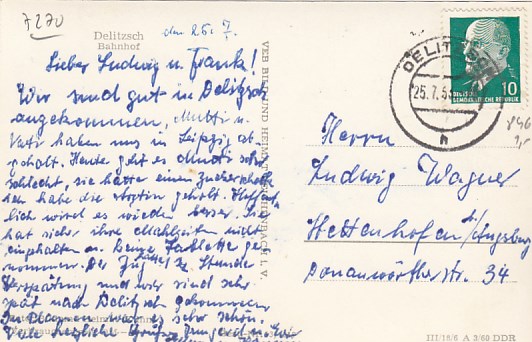 7270
Delitzsch
Bahnhof
den 25. 7.
Lieber Ludwig u. Frank!
Wir sind gut in Delitzsch
angekommen, Mutti u.
Vati haben uns in Leipzig ab
geholt. Heute geht es Mutti sehr
schlecht, sie hatte einen Zuckerschock
ich habe die geholt. Hoffent
lich wird es wieder besser. Sie
hat sicher ihre Mahlzeiten nicht
eingehalten u. keine Tablette ge
nommen. Der Zug hatte 1/2 Stunde
Verspätung und wir sind sehr
spät nach Delitzsch gekommen
In war es sehr schön.
Viele herzliche Grüße
VEB BILD UND HEIMAT REICHENBACH I. V.
DELITZSCH
25.7.
h
10
DEUTSCHE
DEMOKRATISCHE REPUBLIK
Herrn
Ludwig Wagner
Hettenhofen b/Augsburg
Donauwörtherstr. 34
III/18/6 A 3/60 DDR